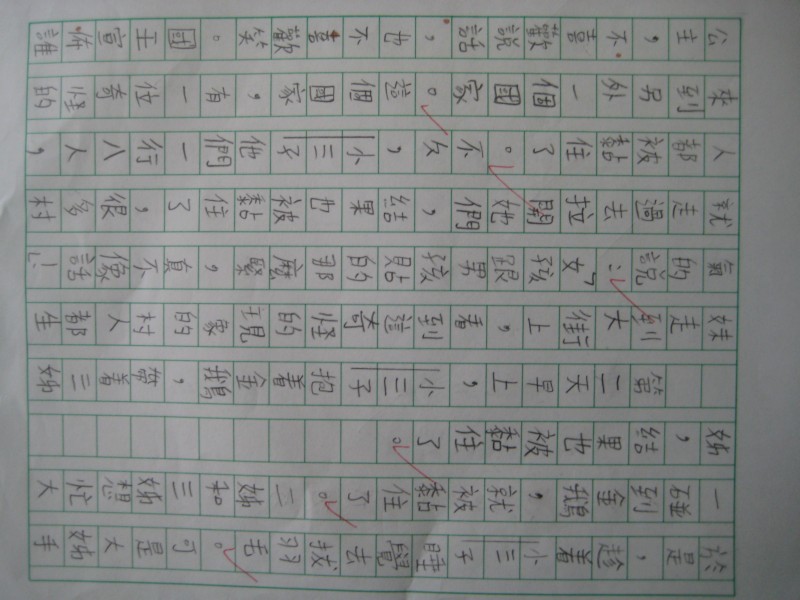 於是，趁著小三子睡覺去拔羽毛。可是大姊手
一碰到金鵝，就被黏住了。二姊和三姊想忙大
姊，結果也被黏住了。
第二天早上，小三子抱著金鵝，帶著三姊
妹走到大街上，看到這奇怪的現象的村人都生
氣的說：「女孩跟男孩貼的那麼緊，真不像話！」
就走過去拉開她們，結果也被黏住了，很多村
人都被黏住了。不久，小三子他們一行八人，
來到另外一個國家。這個國家，有一位奇怪的
公主，不喜歡說話，也不喜歡笑。國王宣佈誰